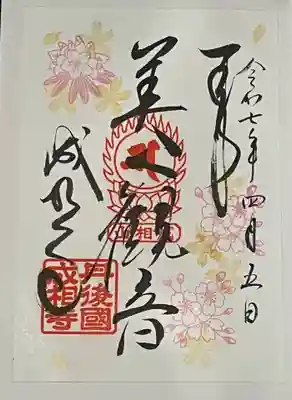 奉拝
令和七年四月五日
美人観音
成相寺
丹後國
成相寺